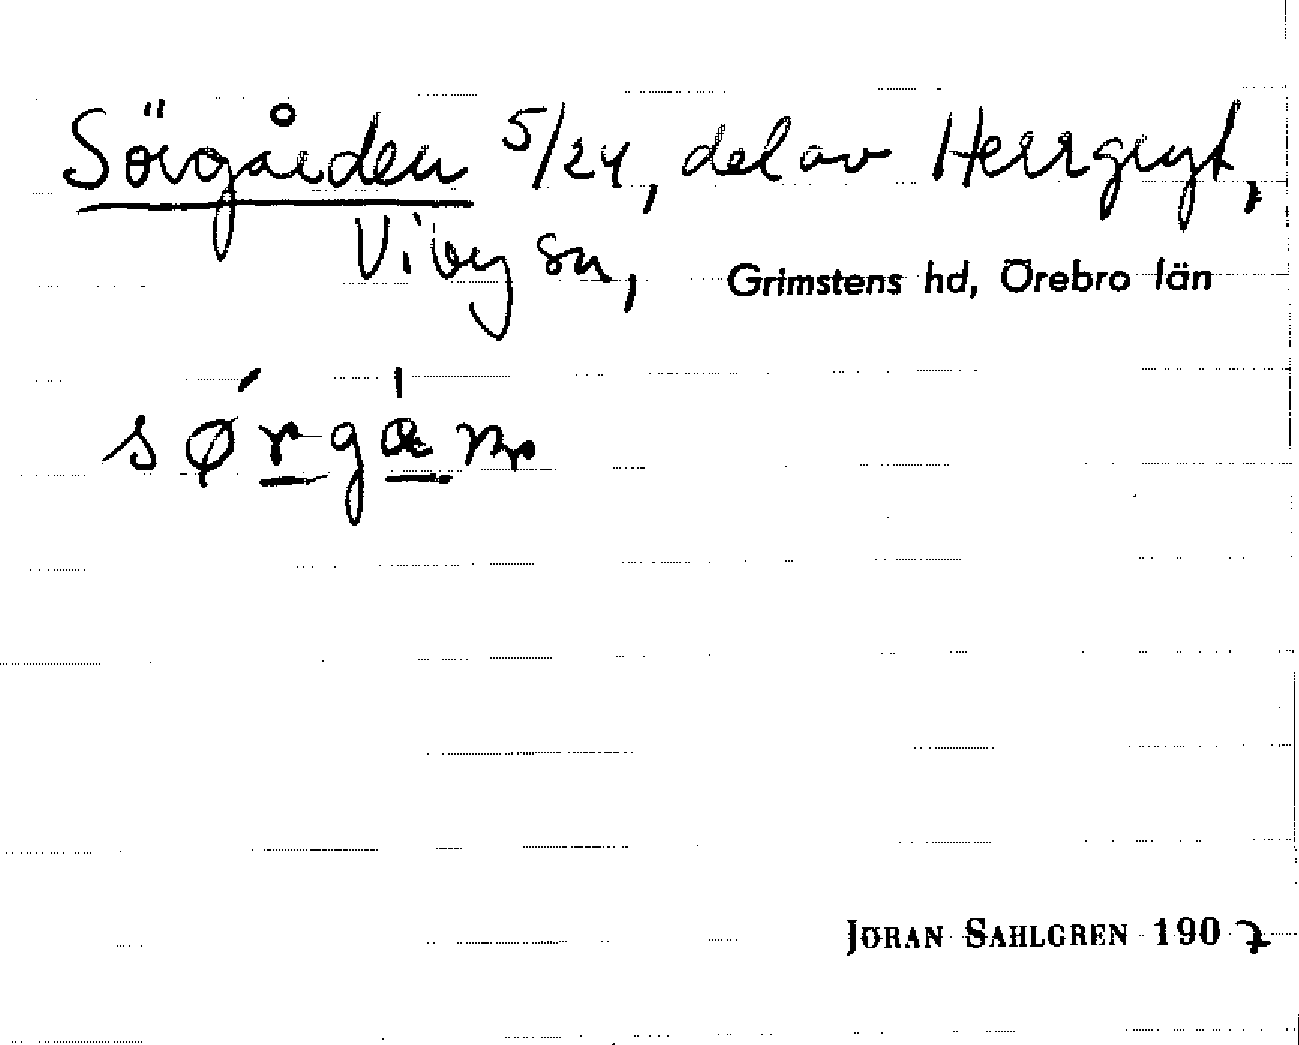 Sörgården 5/24, del av Herrgryt,
Viby sn, Grimstens hd, Örebro län
JÖRAN SAHLGREN 1907